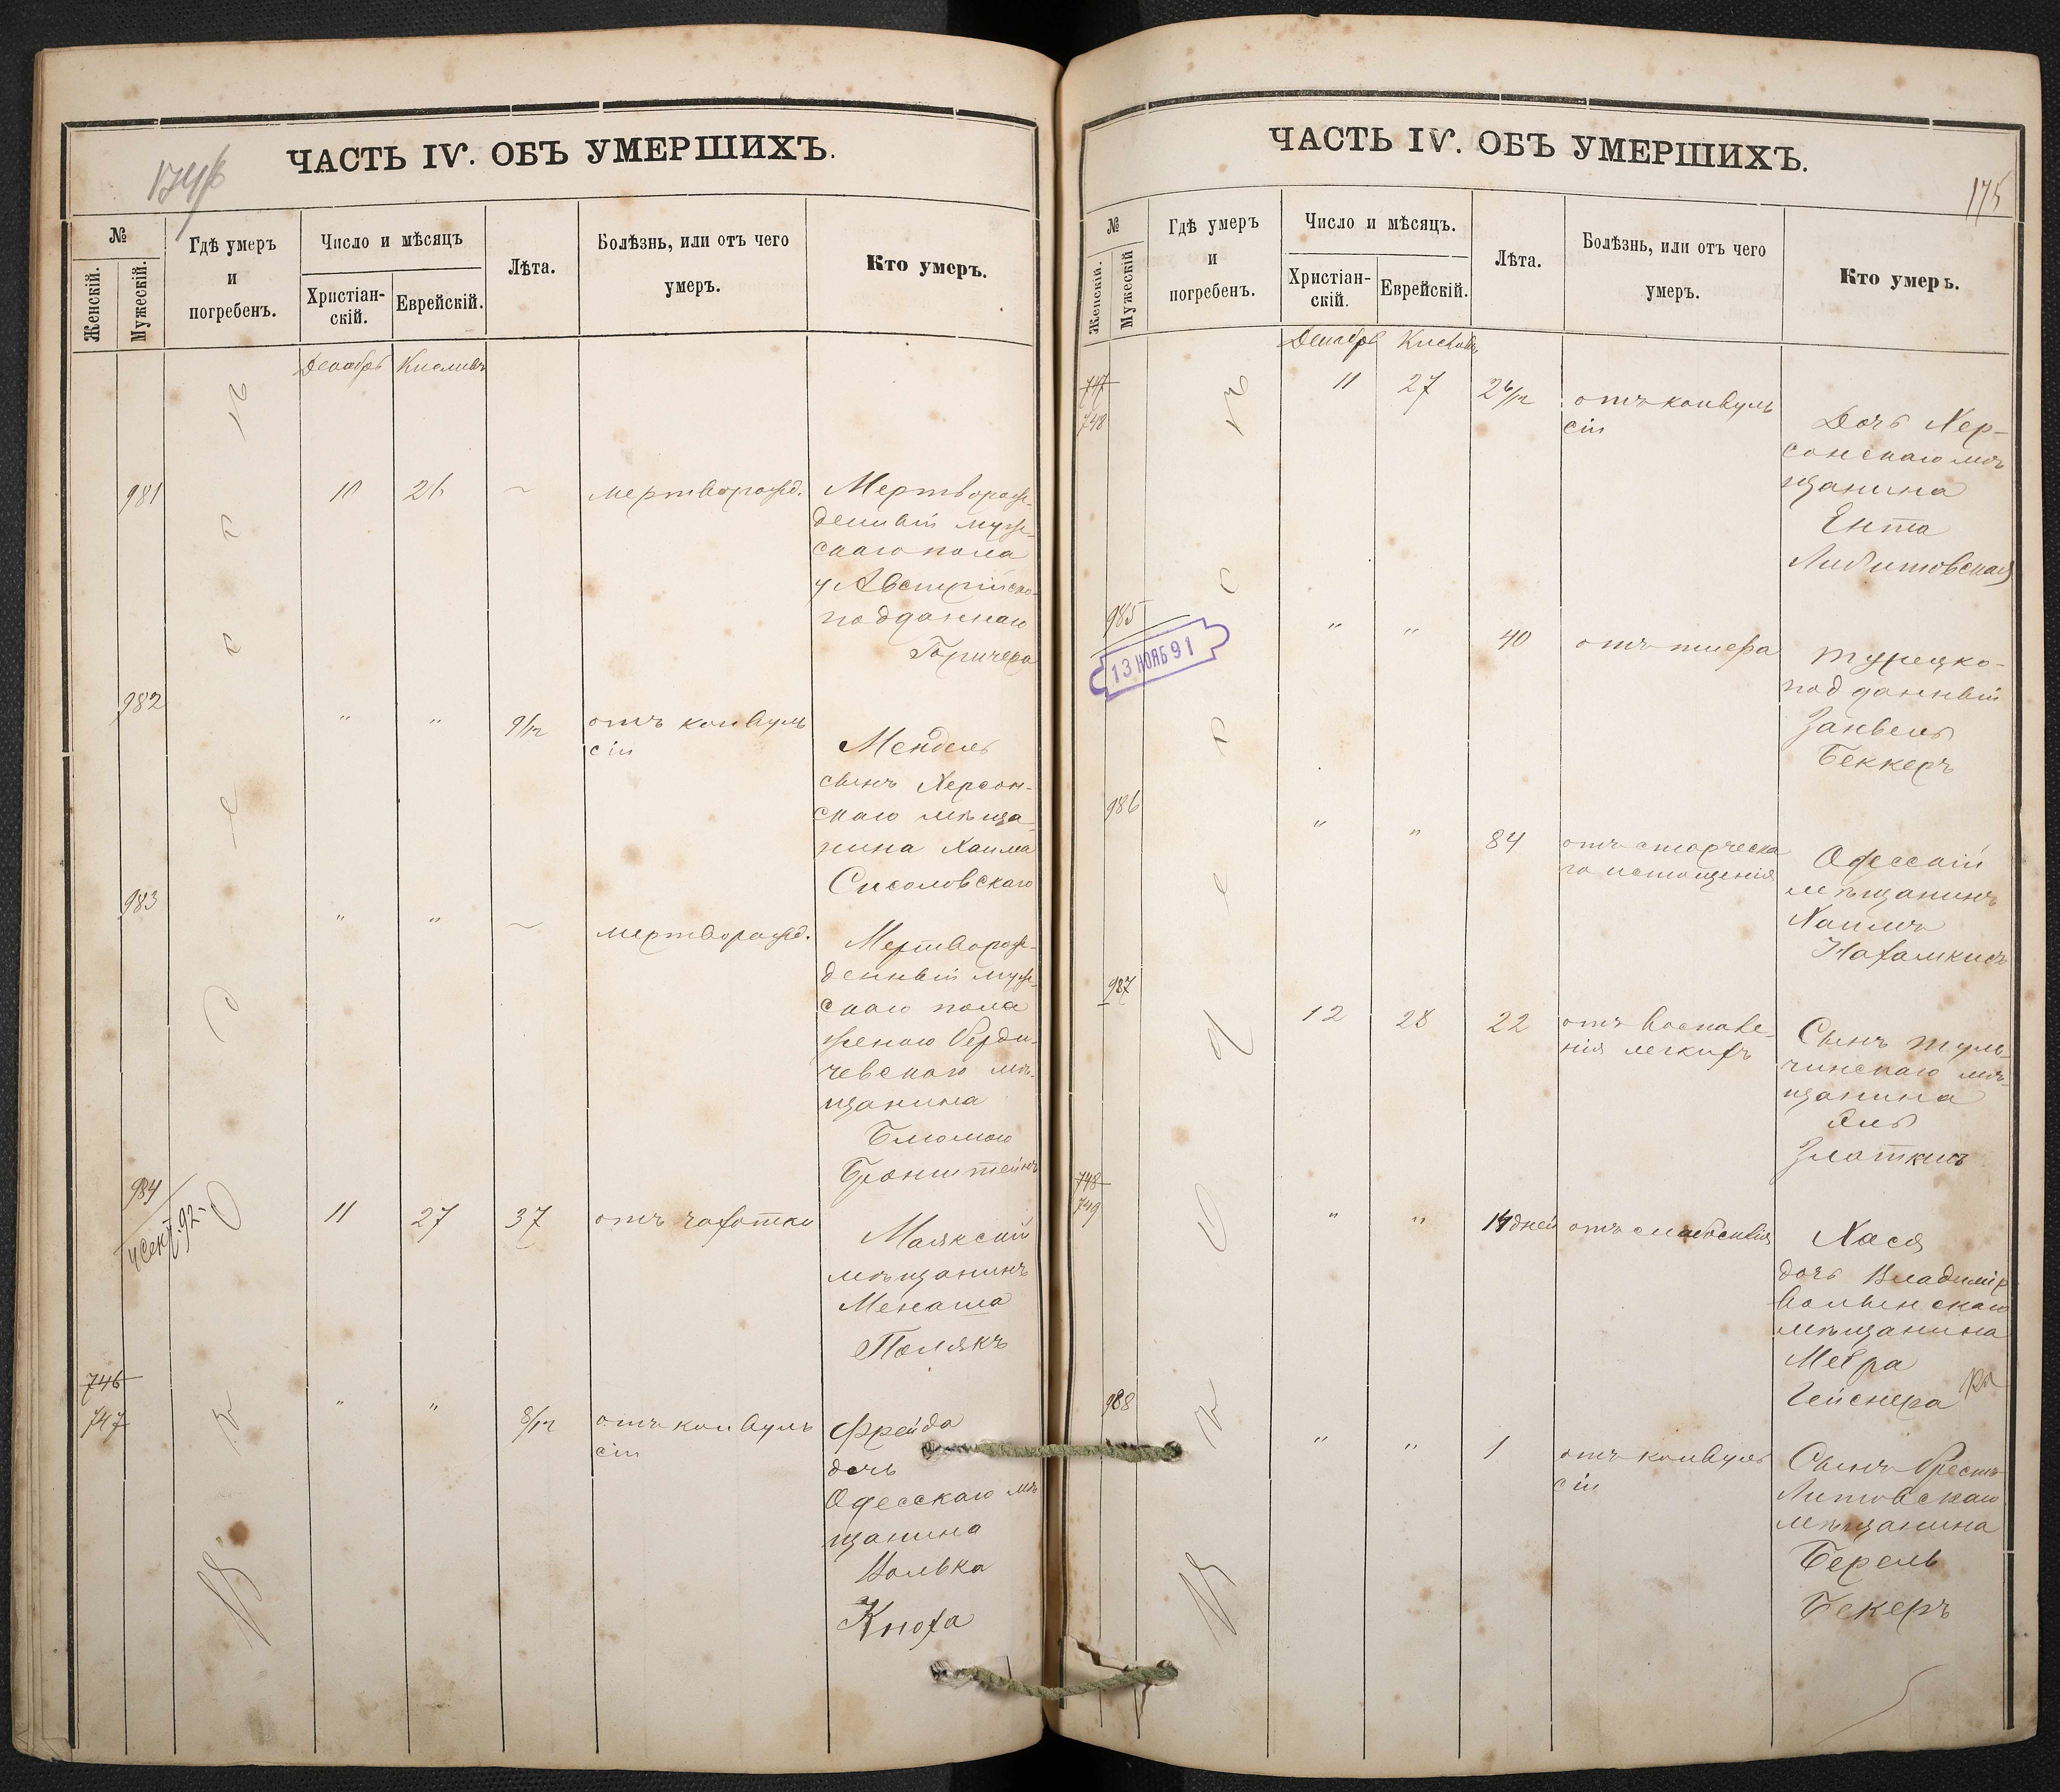 ЧАСТЬ IV. ОБЪ УМЕРШИХЪ.
№
Женскій.
Мужескій.
Гдѣ умеръ
и
погребенъ.
Число и мѣсяцъ
Христіан-
скій.
Еврейскій.
Лѣта.
Болѣзнь, или отъ чего
умеръ.
Кто умеръ.
Декабрь Кислевъ
981 10 26 мертворожд. Мертворож-
денный муж-
скаго пола
у Австрійско-
подданнаго
982 " " 9/12 отъ конвуль
сіи
Мендель
сынъ Херсон-
скаго мѣща-
нина Хаима
983 " " мертворожд. Мертворож-
денный муж-
скаго пола
женою Берди-
чевскаго мѣ-
щанина
Блюмою
Бронштейнъ
984 11 27 37 отъ чахотки
Маякскій
мѣщанинъ
Менаша
Полякъ
746
747 " " 8/12 отъ конвуль
сіи
Фрейда
дочь
Одесскаго мѣ
щанина
Волька
Кноха
ЧАСТЬ IV. ОБЪ УМЕРШИХЪ.
175
№
Женскій.
Мужескій
Гдѣ умеръ
и
погребенъ.
Число и мѣсяцъ.
Христіан-
скій.
Еврейскій.
Лѣта.
Болѣзнь, или отъ чего
умеръ.
Кто умеръ.
Декабрь Кислевъ
747
748 11 27 2 6/12 отъ конвуль
сіи
Дочь Хер-
сонскаго мѣ
щанина
Ента
985 " " 40 отъ тифа
13 НОЯБ 91
Турецко-
подданный
Занвель
Беккеръ
986 " " 84 отъ старческа
го истощенія
Одесскій
мѣщанинъ
Хаимъ
987 12 28 22 отъ воспале-
нія легкихъ
Сынъ Туль-
чинскаго мѣ-
щанина
Златкисъ
748
749 " " 14 дней отъ слабосилія
Хася
дочь Владимір
Волынскаго
мѣщанина
Меера
Гейснера
988 " " 1 отъ конвуль
сіи
Сынъ Брестъ
Литовскаго
мѣщанина
Берель
Бекеръ